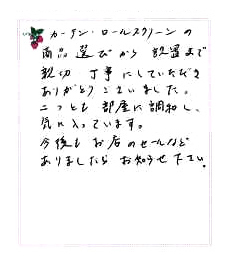 カーテン・ロールスクリーンの
商品選びから設置まで
親切丁寧にしていただき
ありがとうございました。
二つとも部屋に調和し、
気に入っています。
今後もお店のセールなど
ありましたらお知らせ下さい。